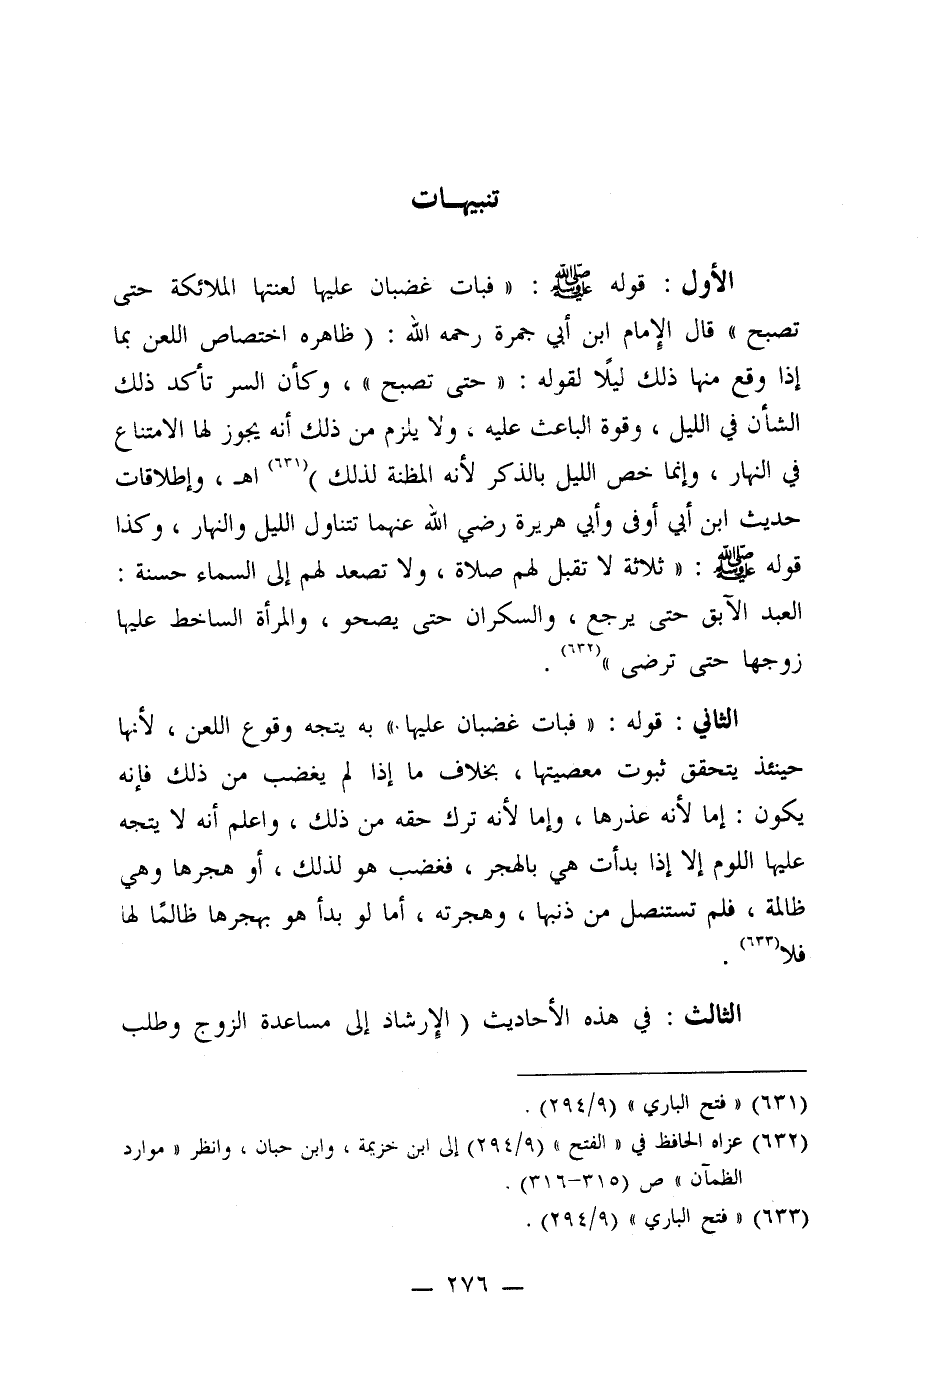 تنبيهـات
الأول : قوله ﷺ : « فبات غضبان عليها لعنتها الملائكة حتى
تصبح » قال الإمام ابن أبي جمرة رحمه الله : ( ظاهره اختصاص اللعن بما
إذا وقع منها ذلك ليلًا لقوله : « حتى تصبح » ، وكأن السر تأكد ذلك
الشأن في الليل ، وقوة الباعث عليه ، ولا يلزم من ذلك أنه يجوز لها الامتناع
في النهار ، وإنما خص الليل بالذكر لأنه المظنة لذلك )(٦٣١) اهـ ، وإطلاقات
حديث ابن أبي أوفى وأبي هريرة رضي الله عنهما تتناول الليل والنهار ، وكذا
قوله ﷺ : « ثلاثة لا تقبل لهم صلاة ، ولا تصعد لهم إلى السماء حسنة :
العبد الآبق حتى يرجع ، والسكران حتى يصحو ، والمرأة الساخط عليها
زوجها حتى ترضى »(٦٣٢) .
الثاني : قوله : « فبات غضبان عليها » به يتجه وقوع اللعن ، لأنها
حينئذ يتحقق ثبوت معصيتها ، بخلاف ما إذا لم يغضب من ذلك فإنه
يكون : إما لأنه عذرها ، وإما لأنه ترك حقه من ذلك ، واعلم أنه لا يتجه
عليها اللوم إلا إذا بدأت هي بالهجر ، فغضب هو لذلك ، أو هجرها وهي
ظالمة ، فلم تستنصل من ذنبها ، وهجرته ، أما لو بدأ هو بهجرها ظالمًا لها
فلا(٦٣٣) .
الثالث : في هذه الأحاديث ( الإرشاد إلى مساعدة الزوج وطلب
(٦٣١) « فتح الباري » (٢٩٤/٩) .
(٦٣٢) عزاه الحافظ في « الفتح » (٢٩٤/٩) إلى ابن خزيمة ، وابن حبان ، وانظر « موارد
الظمآن » ص (٣١٥–٣١٦) .
(٦٣٣) « فتح الباري » (٢٩٤/٩) .
— ٢٧٦ —